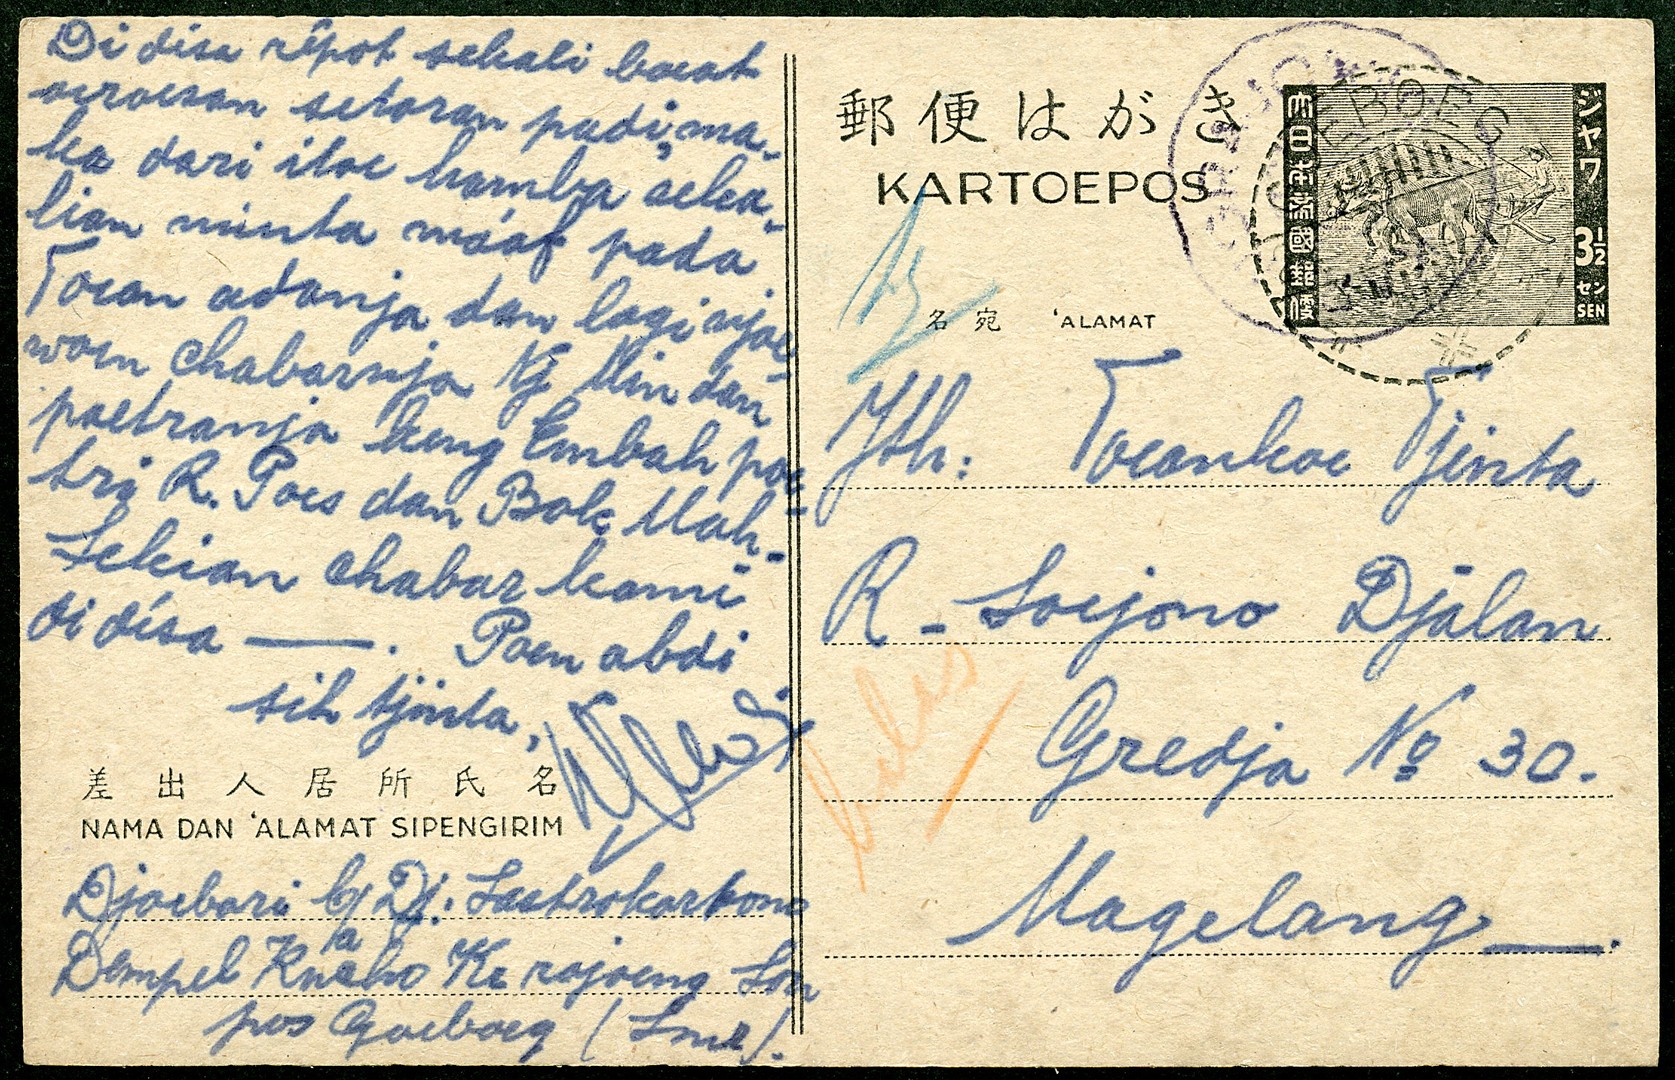 Di désa répot sekali boeat
oeroesan setoran padi, ma-
ka dari itoe hamba seka-
lian minta máaf pada
Toean adanja dan lagi njoe
woen chabarnja Nj Min dan
poetranja keng Embah poe-
tri R. Poes dan Bok Mah-
Sekian chabar kami
di désa —. Poen abdi
sih tjinta,
差出人居所氏名
NAMA DAN 'ALAMAT SIPENGIRIM
Djoebari b/ Dj. Sastrokartono
Dempel Ke rajoeng
pos Goeboeg (Smr).
郵便はがき
KARTOEPOS
名宛 'ALAMAT
Jth: Toeankoe Tjinta
R - Soejono Djalan
Gredja No 30.
Magelang —.
大日本帝國郵便
ジャワ
3½
セン
SEN
GOEBOEG